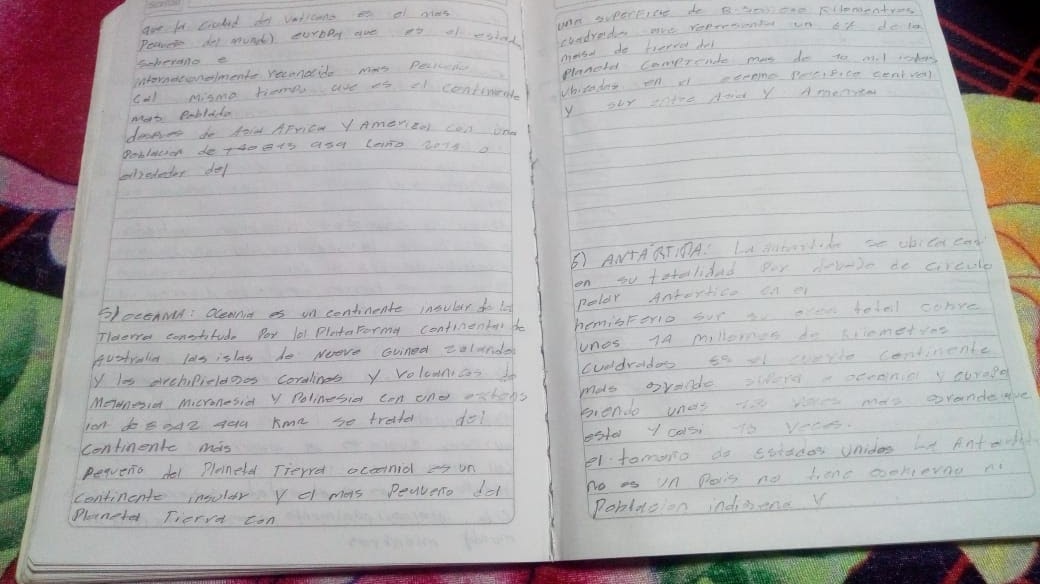 que la ciudad del vaticano es el mas
Pequeño del mundo) europa que es el estado
soberano e
internacionalmente reconocido mas Pequeño
cal mismo tiempo que es el continente
mas Poblado
despues de Asia Africa Y America) con una
Poblacion de
alrededor del
5) OCEANIA: Oceania es un continente insular de la
Tiaerra constituido Por lal PlataForma continental de
Australia las islas de Nueva Guinea zelanda
Y los archiPielagos Coralinos Y Volcanicos de
Melanesia Micronesia Y Polinesia con una extens
ion de km2 se trata del
continente más
Pequeño del Planeta Tierra oceania es un
Continente insular Y el mas Pequeño del
Planeta Tierra con
una superficie de Kilomentros
cuadrados que representa un 6% de la
masa de tierra del
Planeta Comprende mas de 10 mil islas
Ubicadas en el oceano Pacifico central
Y sur entre Asia Y America
6) ANTÁRTIDA: La antartida se ubica casi
en su totalidad Por debajo de circulo
Polar Antartico en el
hemisFerio sur su area total cubre
unos 14 millones de kilometros
cuadrados es el cuarto continente
mas grande supera a oceania y europa
siendo unas veces mas grande que
esta Y casi veces.
el tamaño de Estados Unidos La Antartida
no es un Pais no tiene gobierno ni
Poblacion indigena Y